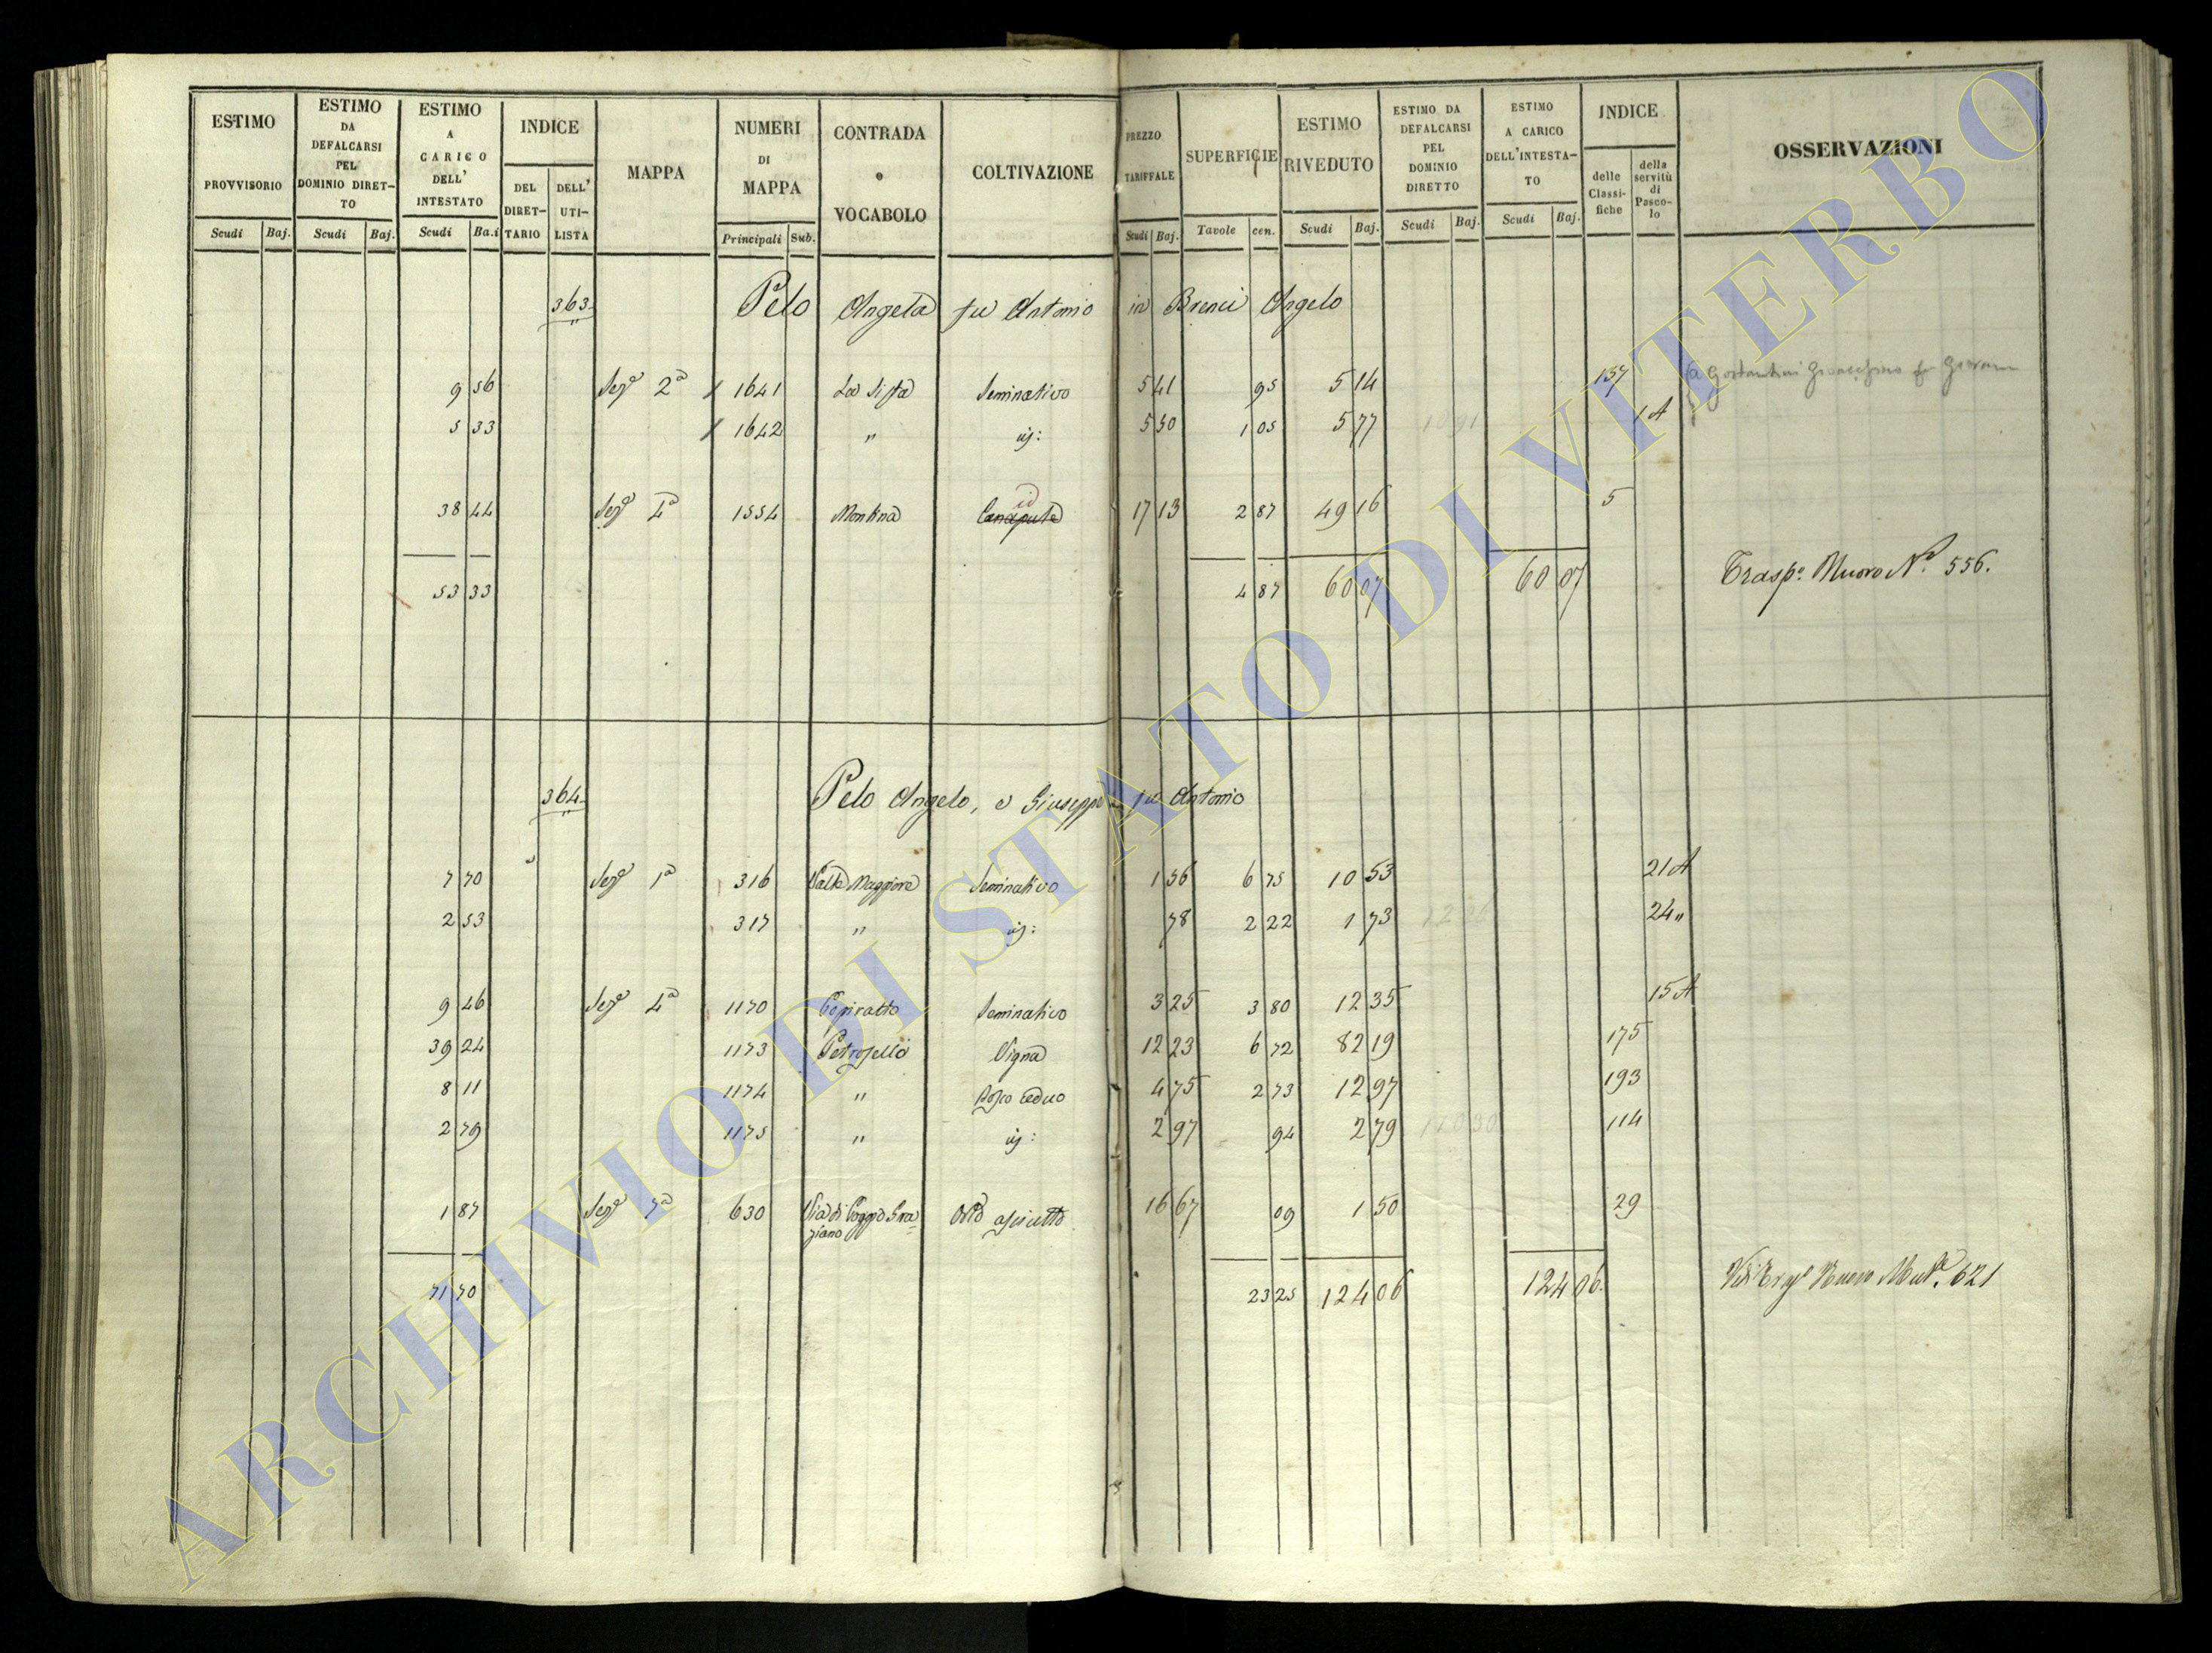 ESTIMO PROVVISORIO Scudi Baj.
ESTIMO DA DEFALCARSI PEL DOMINIO DIRET-TO Scudi Baj.
ESTIMO A CARICO DELL' INTESTATO Scudi Ba.i
INDICE DEL DIRET-TARIO DELL' UTI-LISTA
MAPPA
NUMERI DI MAPPA Principali Sub.
CONTRADA o VOCABOLO
COLTIVAZIONE
PREZZO TARIFFALE Scudi Baj.
SUPERFICIE Tavole cen.
ESTIMO RIVEDUTO Scudi Baj.
ESTIMO DA DEFALCARSI PEL DOMINIO DIRETTO Scudi Baj.
ESTIMO A CARICO DELL'INTESTA-TO Scudi Baj.
INDICE delle Classi-fiche della servitù di Pasco-lo
OSSERVAZIONI
363. Pelo Angela fu Antonio in Brenci Angelo
9 56 Sez.e 2a 1641 La Sista Seminativo 5 41 95 5 14 137 a Gostantini Gioacchino fu
5 33 1642 " id: 5 50 1 05 5 77 10 91 1 A
38 44 Sez.e 4a 1554 Montina Canapule id 17 13 2 87 49 16 5
53 33 4 87 60 07 60 07 Trasp.o Nuovo N.o 556.
364. Pelo Angelo, e Giuseppe fu Antonio
7 70 Sez.e 1a 316 Valle Maggiore Seminativo 1 56 6 75 10 53 21 A
2 53 317 " id: 78 2 22 1 73 12 26 24 "
9 46 Sez.e 4a 1170 Seminativo 3 25 3 80 12 35 15 A
39 24 1173 Petrosello Vigna 12 23 6 72 82 19 175
8 11 1174 " Bosco Ceduo 4 75 2 73 12 97 193
2 79 1175 " id: 2 97 94 2 79 110 30 114
1 87 Sez.e 7a 630 Via di Poggio Gra=ziano Orto asciutto 16 67 09 1 50 29
71 70 23 25 124 06 124 06. Nuovo 621
ARCHIVIO DI STATO DI VITERBO